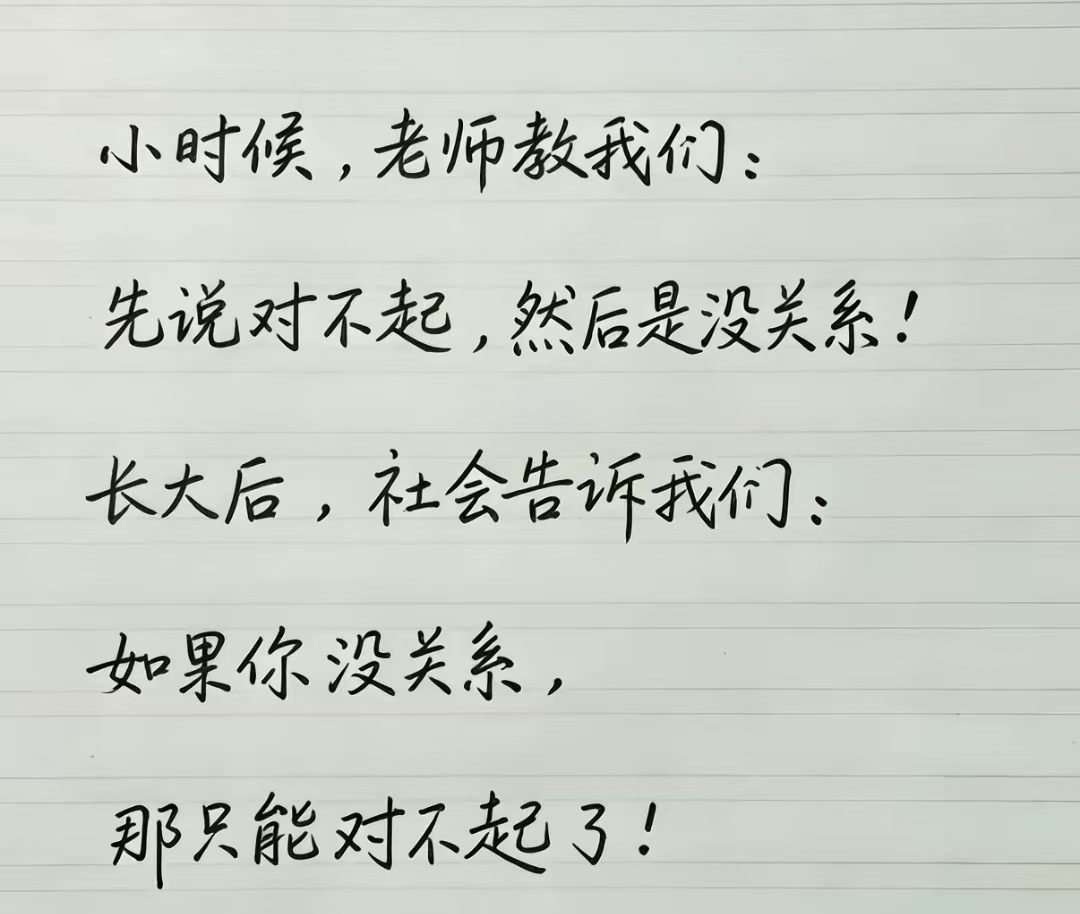 小时候，老师教我们：
先说对不起，然后是没关系！
长大后，社会告诉我们：
如果你没关系，
那只能对不起了！